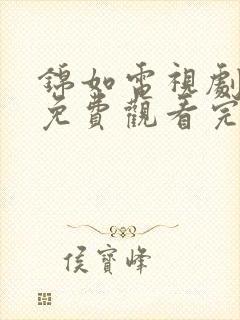 錦如電視劇
免費觀看完
侯寶峰